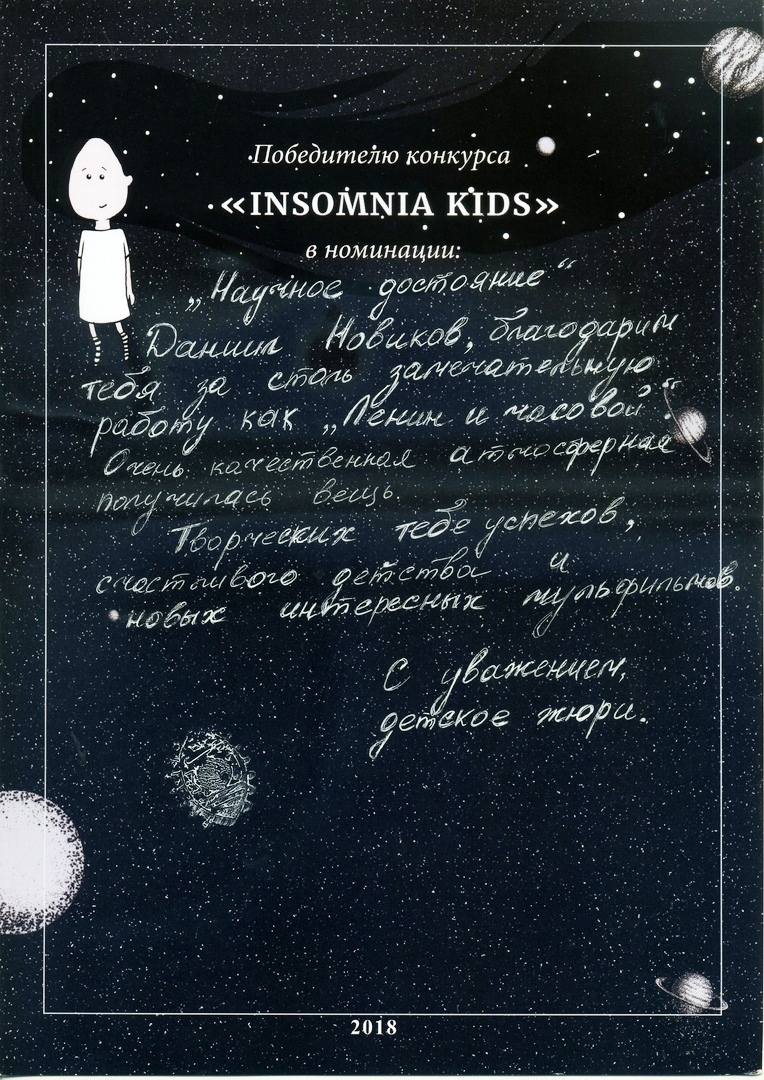 Победителю конкурса
«INSOMNIA KIDS»
в номинации:
„Научное достояние“
Даниил Новиков, благодарим
тебя за столь замечательную
работу как „Ленин и часовой“.
Очень качественная атмосферная
получилась вещь.
Творческих тебе успехов,
счастливого детства и
новых интересных мультфильмов.
С уважением,
детское жюри.
2018